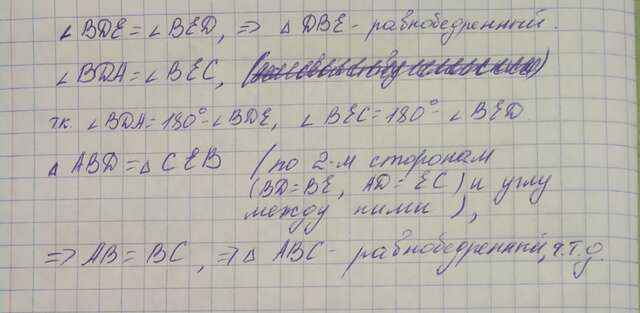 ∠ BDE = ∠ BED, => △ DBE - равнобедренный.
∠ BDA = ∠ BEC,
т.к. ∠ BDA = 180° - ∠ BDE, ∠ BEC = 180° - ∠ BED
△ ABD = △ CEB (по 2-м сторонам
(BD = BE, AD = EC) и углу
между ними),
=> AB = BC, => △ ABC - равнобедренный, ч.т.д.